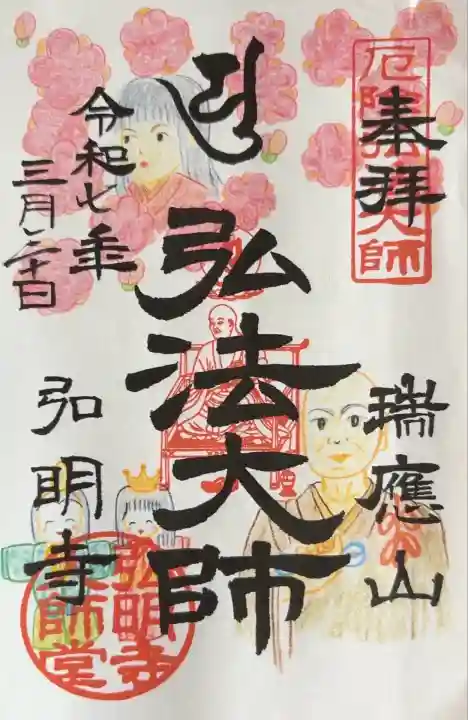 奉拝
厄除大師
瑞應山
弘法大師
令和七年
三月二十日
弘明寺
弘明寺
大師堂